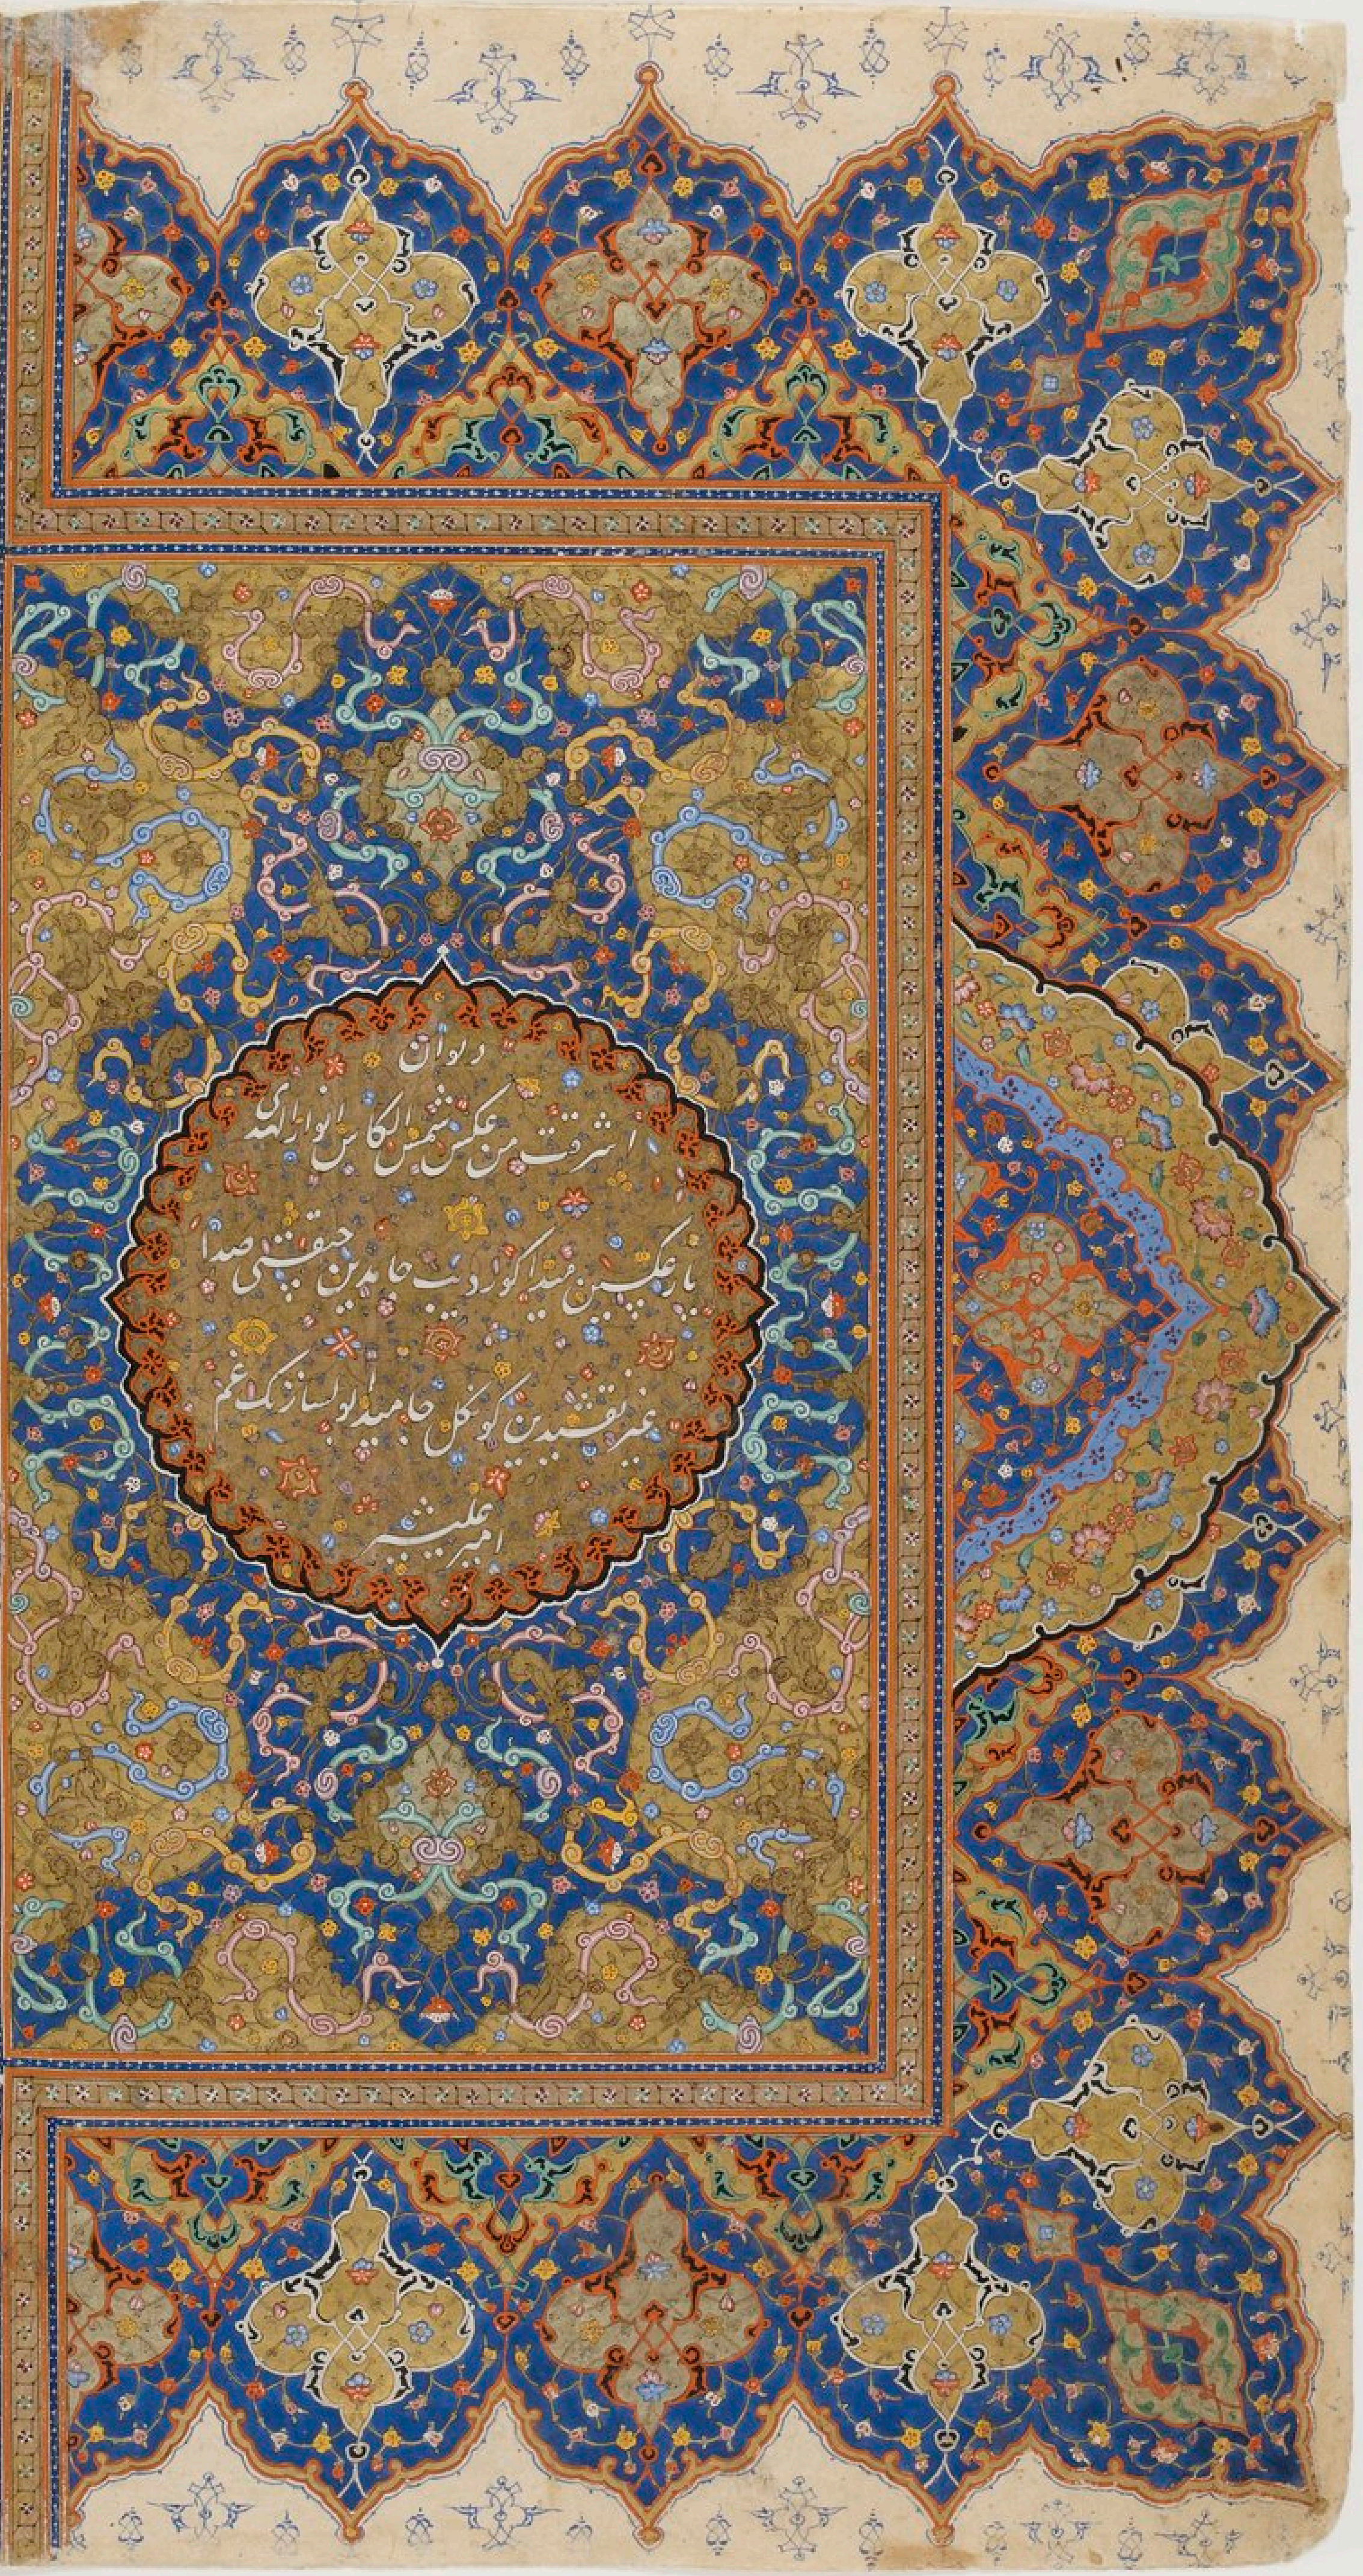 دیوان
اشرقت من عکس شمس الکاس انوار الهدی
یار عکسین میدا کور دیب جامدین چیقتی صدا
غیر نقشیدین کونکل جامیدا بولسا زنک غم
امیر علیشیر